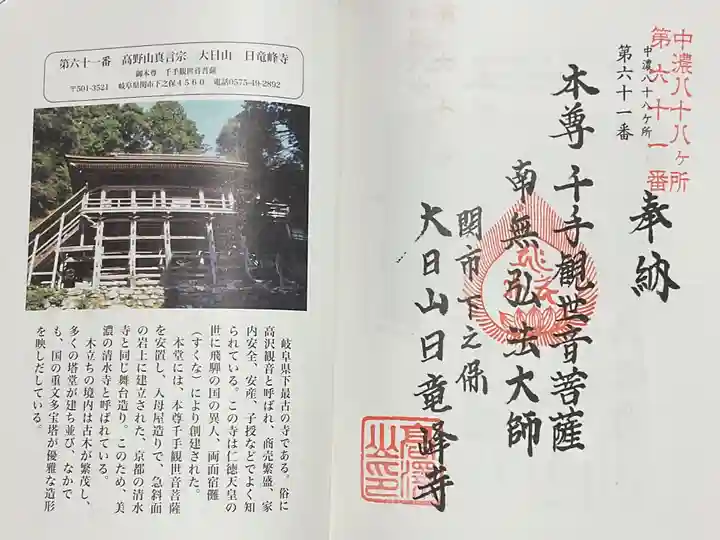 第六十一番　高野山真言宗　大日山　日竜峰寺
御本尊　千手観世音菩薩
〒501-3521　岐阜県関市下之保4560　電話0575-49-2892
岐阜県下最古の寺である。俗に
高沢観音と呼ばれ、商売繁盛、家
内安全、安産、子授などでよく知
られている。この寺は仁徳天皇の
世に飛騨の国の異人、両面宿儺
（すくな）により創建された。
本堂には、本尊千手観世音菩薩
を安置し、入母屋造りで、急斜面
の岩上に建立された、京都の清水
寺と同じ舞台造り、このため、美
濃の清水寺と呼ばれている。
木立ちの境内は古木が繁茂し、
多くの塔堂が建ち並び、なかで
も、国の重文多宝塔が優雅な造形
を映しだしている。
中濃八十八ヶ所
第六十一番
中濃八十八ケ所
第六十一番
奉納
本尊千手観世音菩薩
南無弘法大師
関市下之保
大日山日竜峰寺
高澤
山印